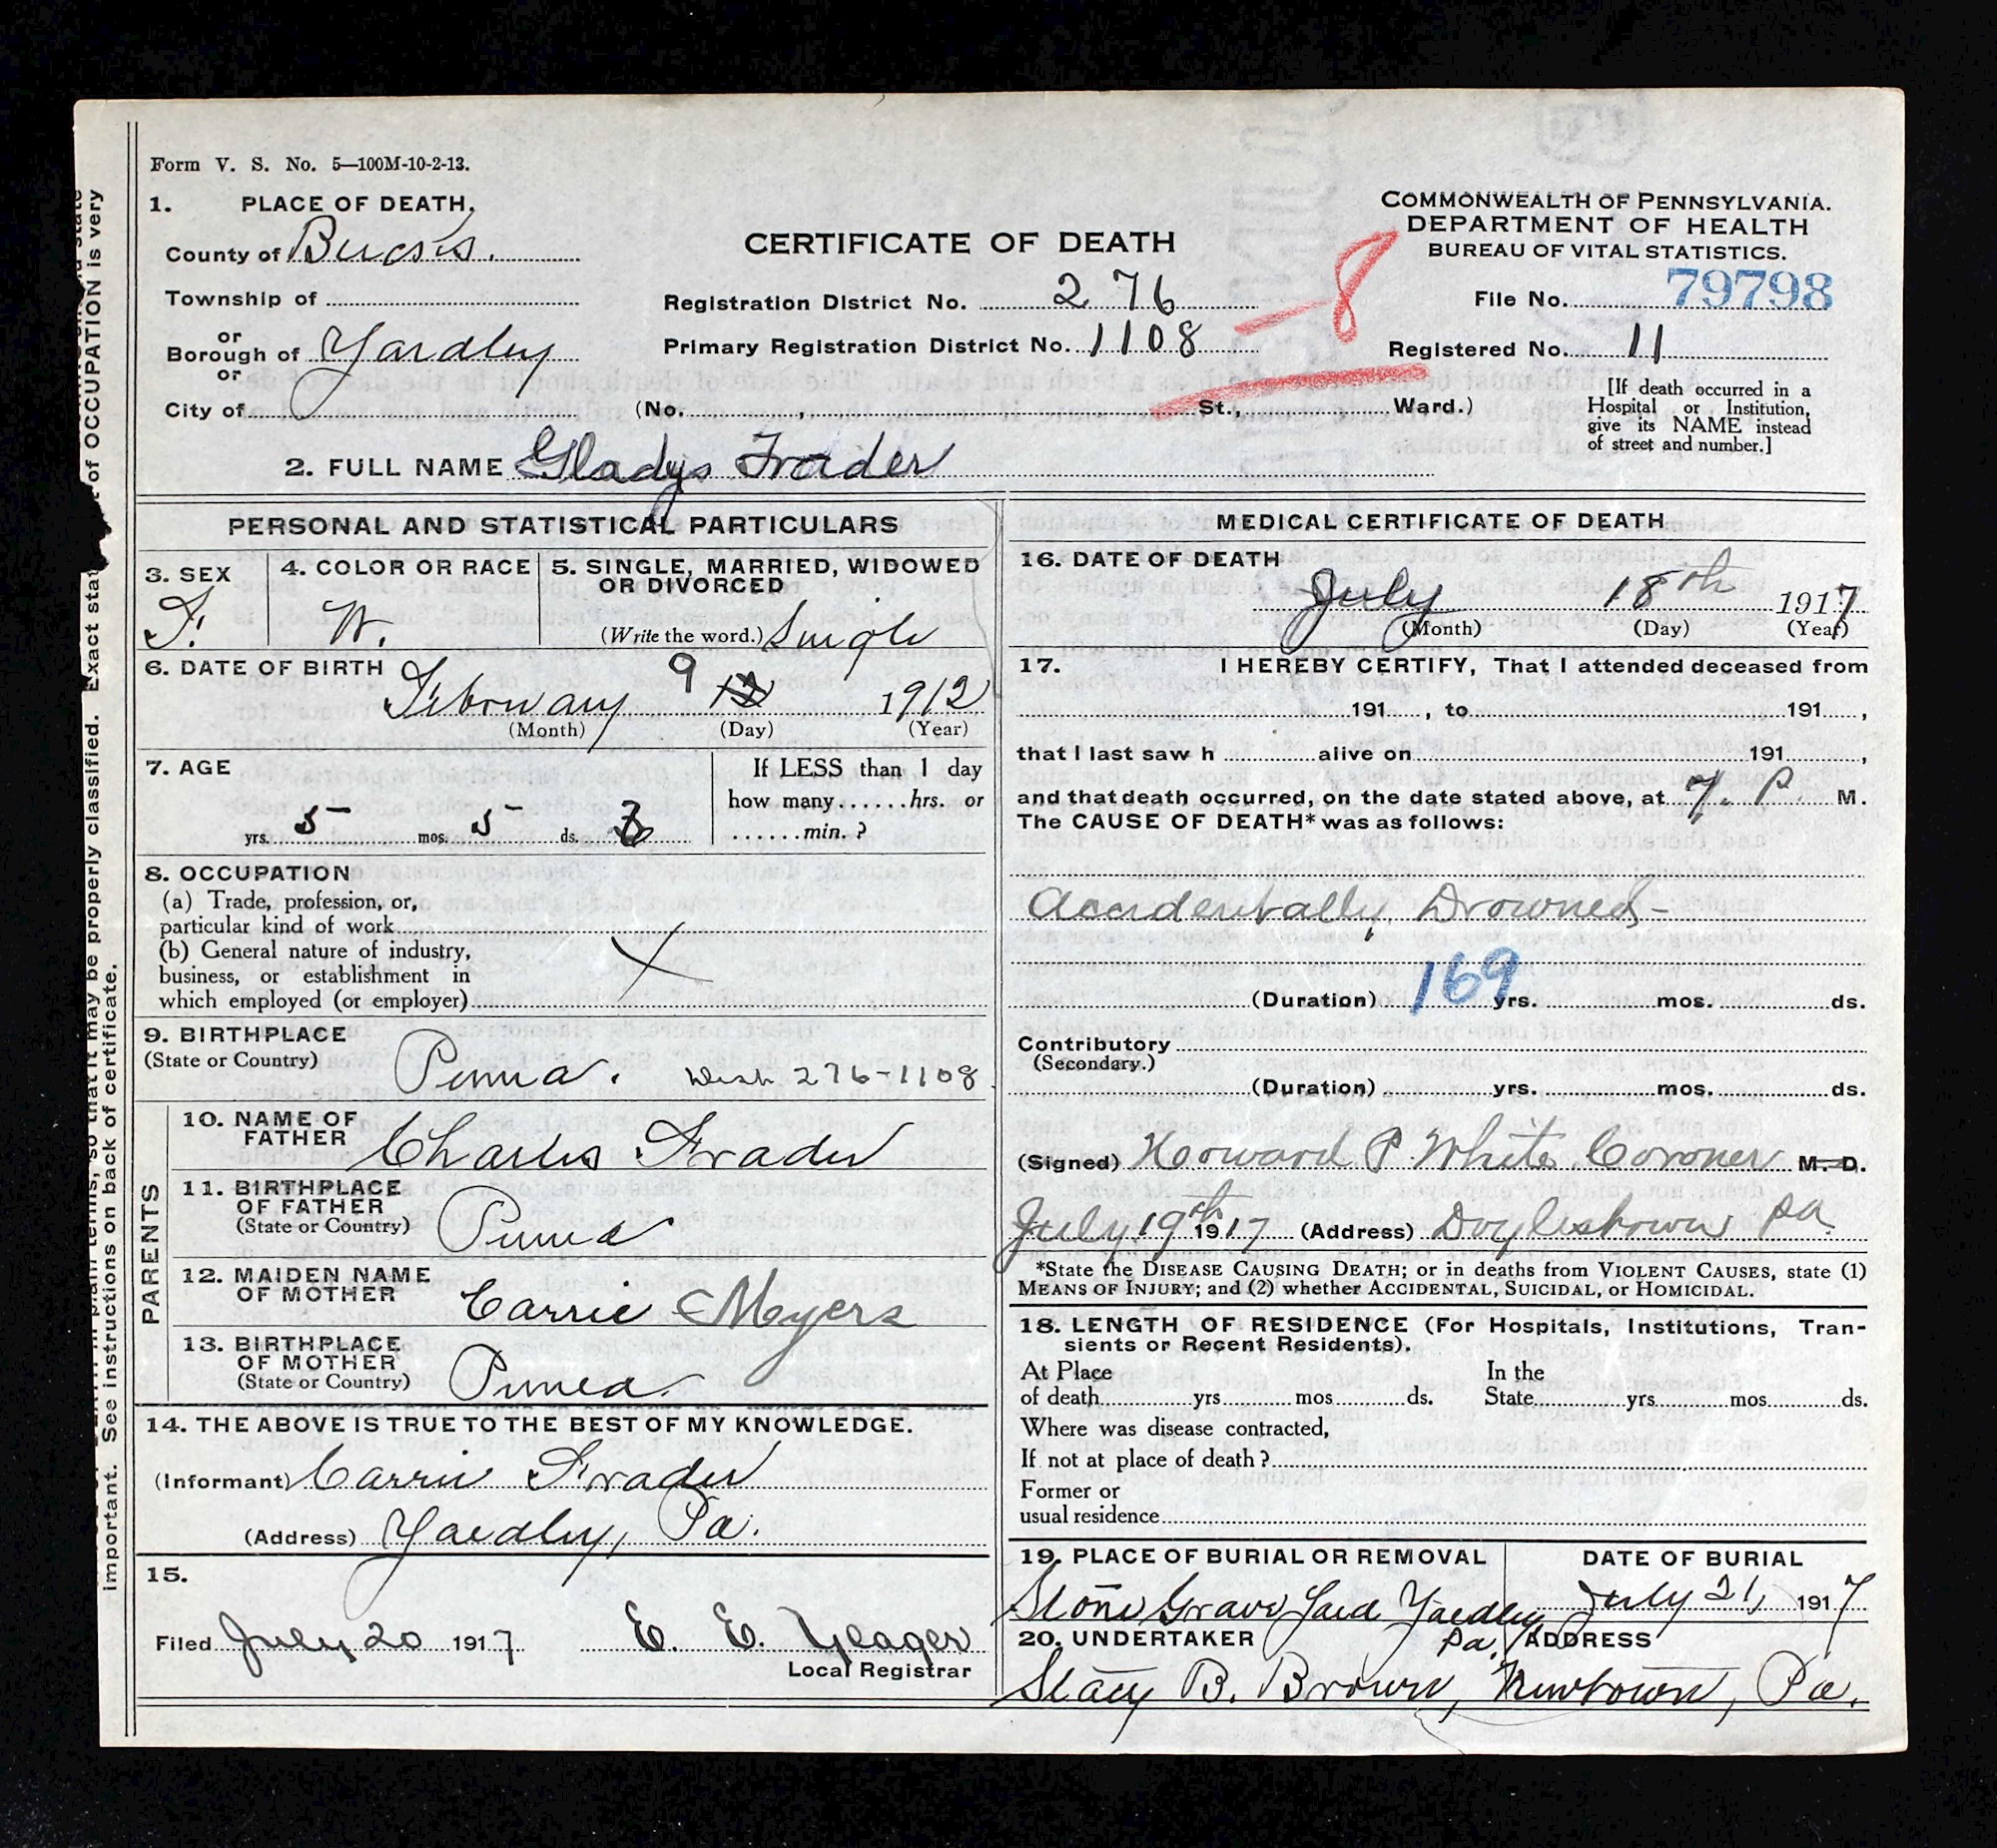 Form V. S. No. 5—100M-10-2-13.
1. PLACE OF DEATH.
County of Bucks.
Township of
or
Borough of Yardley
or
City of
CERTIFICATE OF DEATH
Registration District No. 276
Primary Registration District No. 1108
(No. , St., Ward.)
COMMONWEALTH OF PENNSYLVANIA.
DEPARTMENT OF HEALTH
BUREAU OF VITAL STATISTICS.
File No. 79798
Registered No. 11
[If death occurred in a
Hospital or Institution,
give its NAME instead
of street and number.]
8
2. FULL NAME Gladys Trader
PERSONAL AND STATISTICAL PARTICULARS
3. SEX
F.
4. COLOR OR RACE
W.
5. SINGLE, MARRIED, WIDOWED
OR DIVORCED
(Write the word.) Single
6. DATE OF BIRTH
February 9 1912
(Month) (Day) (Year)
7. AGE
yrs. 5 mos. 5 ds.
If LESS than 1 day
how many......hrs. or
......min. ?
8. OCCUPATION
(a) Trade, profession, or,
particular kind of work
(b) General nature of industry,
business, or establishment in
which employed (or employer)
9. BIRTHPLACE
(State or Country)
Penna. Dish 276-1108
PARENTS
10. NAME OF
FATHER
Charles Trader
11. BIRTHPLACE
OF FATHER
(State or Country)
Penna
12. MAIDEN NAME
OF MOTHER
Carrie Myers
13. BIRTHPLACE
OF MOTHER
(State or Country)
Penna.
14. THE ABOVE IS TRUE TO THE BEST OF MY KNOWLEDGE.
(Informant) Carrie Trader
(Address) Yardley, Pa.
15.
Filed July 20 1917 E. E. Yeager
Local Registrar
MEDICAL CERTIFICATE OF DEATH
16. DATE OF DEATH
July 18th 1917
(Month) (Day) (Year)
17. I HEREBY CERTIFY, That I attended deceased from
191 , to 191 ,
that I last saw h alive on 191 ,
and that death occurred, on the date stated above, at 7. P. M.
The CAUSE OF DEATH* was as follows:
Accidentally Drowned-
169
(Duration) yrs. mos. ds.
Contributory
(Secondary.)
(Duration) yrs. mos. ds.
(Signed) Howard P. White Coroner M.D.
July 19th 1917 (Address) Doylestown Pa.
*State the DISEASE CAUSING DEATH; or in deaths from VIOLENT CAUSES, state (1)
MEANS OF INJURY; and (2) whether ACCIDENTAL, SUICIDAL, or HOMICIDAL.
18. LENGTH OF RESIDENCE (For Hospitals, Institutions, Tran-
sients or Recent Residents).
At Place In the
of death yrs. mos ds. State yrs. mos. ds.
Where was disease contracted,
If not at place of death ?
Former or
usual residence
19. PLACE OF BURIAL OR REMOVAL
Slate Grave Yard Yardley
Pa.
DATE OF BURIAL
July 21, 1917
20. UNDERTAKER
Stacy B. Brown,
ADDRESS
Newtown, Pa.
Exact of OCCUPATION is very
important. See instructions on back of certificate.
in plain terms, so that it may be properly classified.